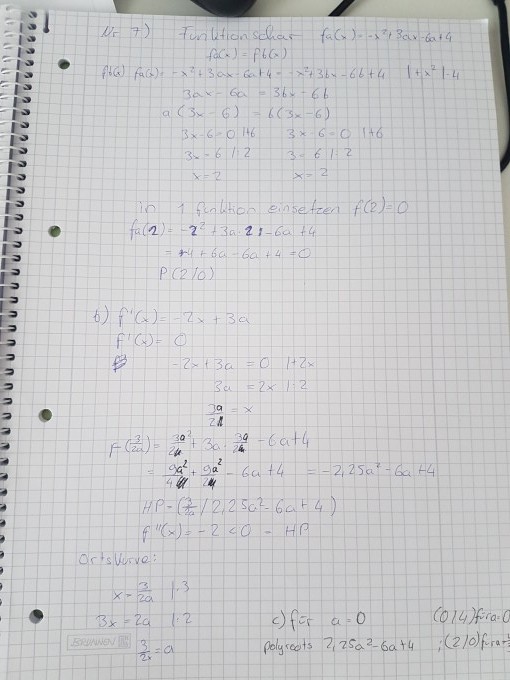 Nr 7) Funktionschar fa(x) = -x²+3ax-6a+4
fa(x) = fb(x)
fa(x) = -x²+3ax-6a+4 = -x²+3bx-6b+4 |+x² |-4
3ax - 6a = 3bx - 6b
a(3x-6) = b(3x-6)
3x-6=0 |+6 3x-6=0 |+6
3x=6 |:2 3=6 |:2
x=2 x=2
in 1 funktion einsetzen f(2)=0
fa(2) = -2²+3a·2-6a+4
= -4+6a-6a+4=0
P(2/0)
b) f'(x) = -2x+3a
f'(x) = 0
-2x+3a = 0 |+2x
3a = 2x |:2
3a/2 = x
f(3/2a) = 3a²/2 + 3a · 3a/2 - 6a+4
= 9a²/4 + 9a²/2 - 6a+4 = -2,25a²-6a+4
HP=(3/2a / 2,25a²-6a+4)
f''(x) = -2 <0 - HP
Ortskurve:
x = 3/2a |·3
3x = 2a |·2
3/2x = a
BRUNNEN
c) für a=0 (0/4) für a=0
polyroots 2,25a²-6a+4 ;(2/0) für a=